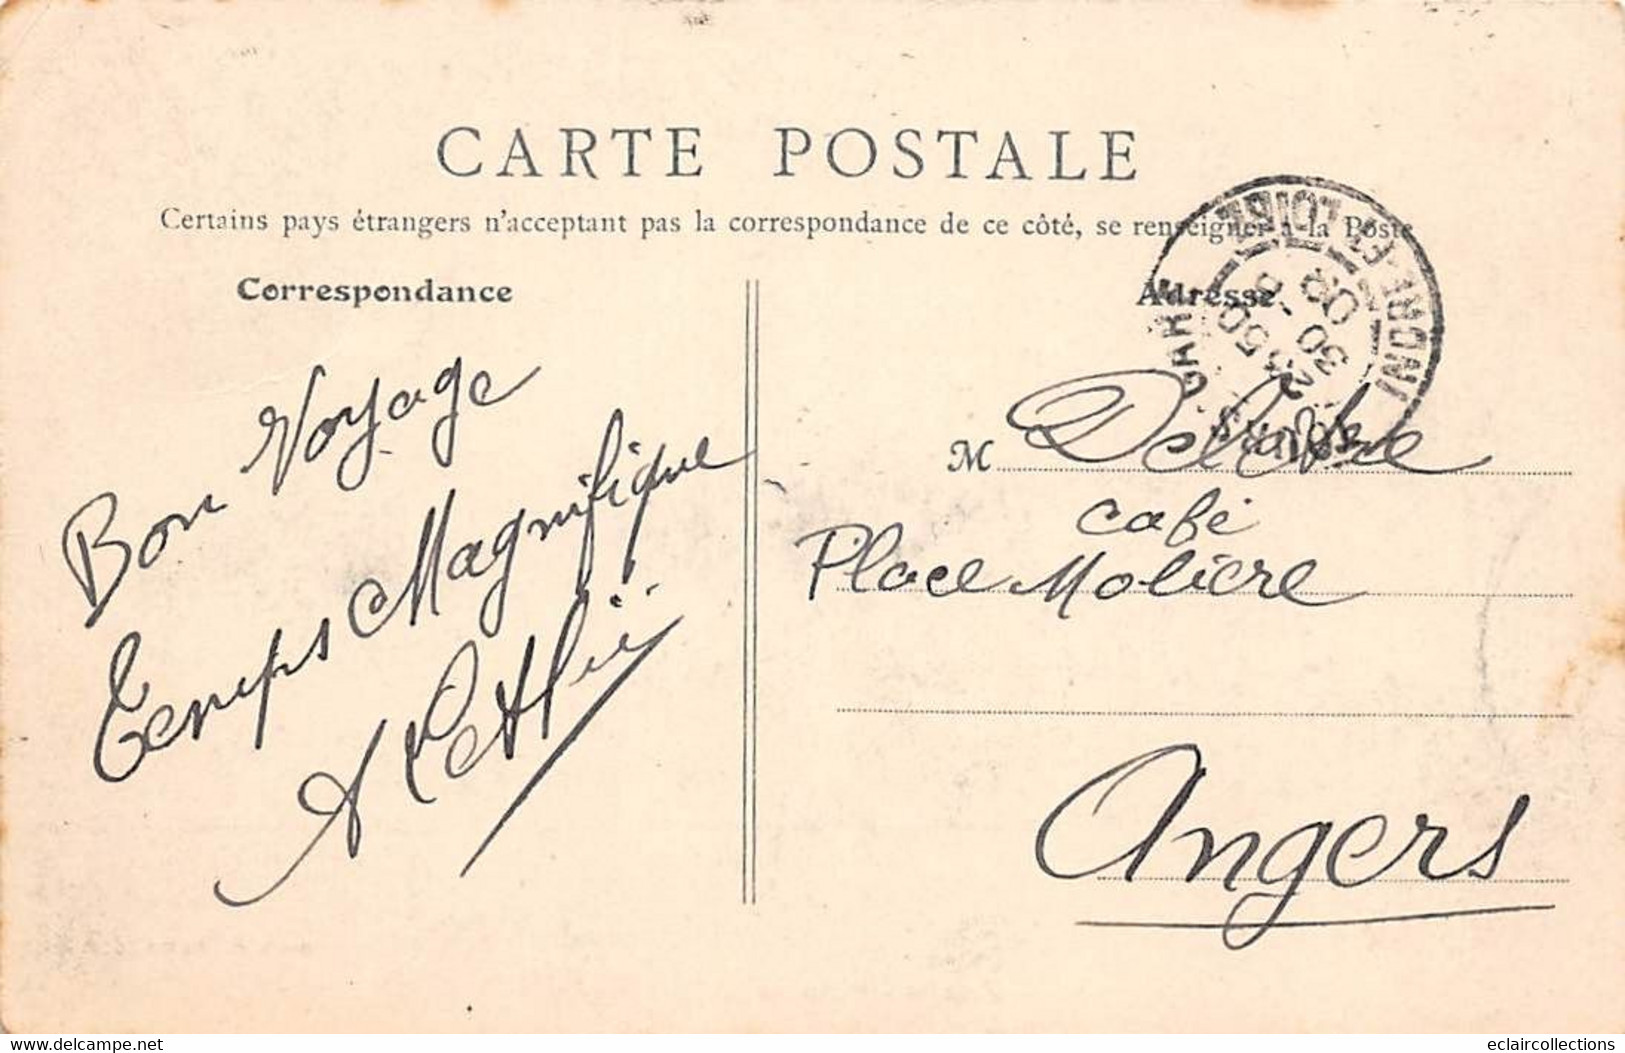 CARTE POSTALE
Certains pays étrangers n'acceptent pas la correspondance de ce côté, se renseigner à la Poste
Correspondance
Adresse
Bon Voyage
Temps Magnifique
M
café
Place Molière
Angers
TOURS GARE
INDRE-ET-LOIRE
23 50
30 - 
08
delcampe.net
eclaircollections